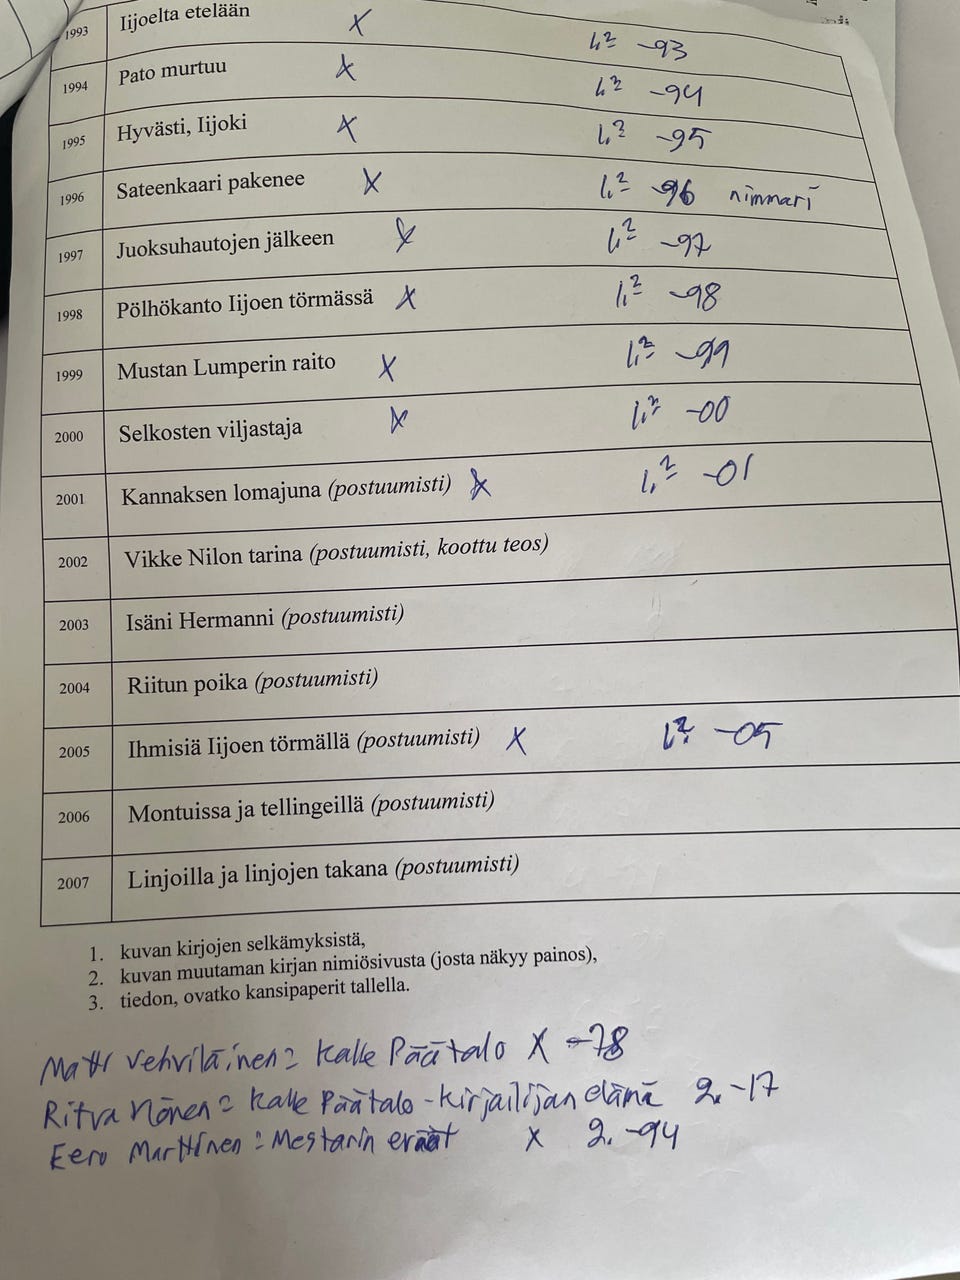 1993 Iijoelta etelään X 1,2 -93
1994 Pato murtuu X 1,2 -94
1995 Hyvästi, Iijoki X 1,2 -95
1996 Sateenkaari pakenee X 1,2 -96 nimmari
1997 Juoksuhautojen jälkeen X 1,2 -97
1998 Pölhökanto Iijoen törmässä X 1,2 -98
1999 Mustan Lumperin raito X 1,2 -99
2000 Selkosten viljastaja X 1,2 -00
2001 Kannaksen lomajuna (postuumisti) X 1,2 -01
2002 Vikke Nilon tarina (postuumisti, koottu teos)
2003 Isäni Hermanni (postuumisti)
2004 Riitun poika (postuumisti)
2005 Ihmisiä Iijoen törmällä (postuumisti) X 1,2 -05
2006 Montuissa ja tellingeillä (postuumisti)
2007 Linjoilla ja linjojen takana (postuumisti)
1. kuvan kirjojen selkämyksistä,
2. kuvan muutaman kirjan nimiösivusta (josta näkyy painos),
3. tiedon, ovatko kansipaperit tallella.
Matti Vehviläinen = Kalle Päätalo X -78
Ritva Ylönen = Kalle Päätalo - kirjailijan elämä 2. -17
Eero Marttinen = Mestarin eräät X 2. -94